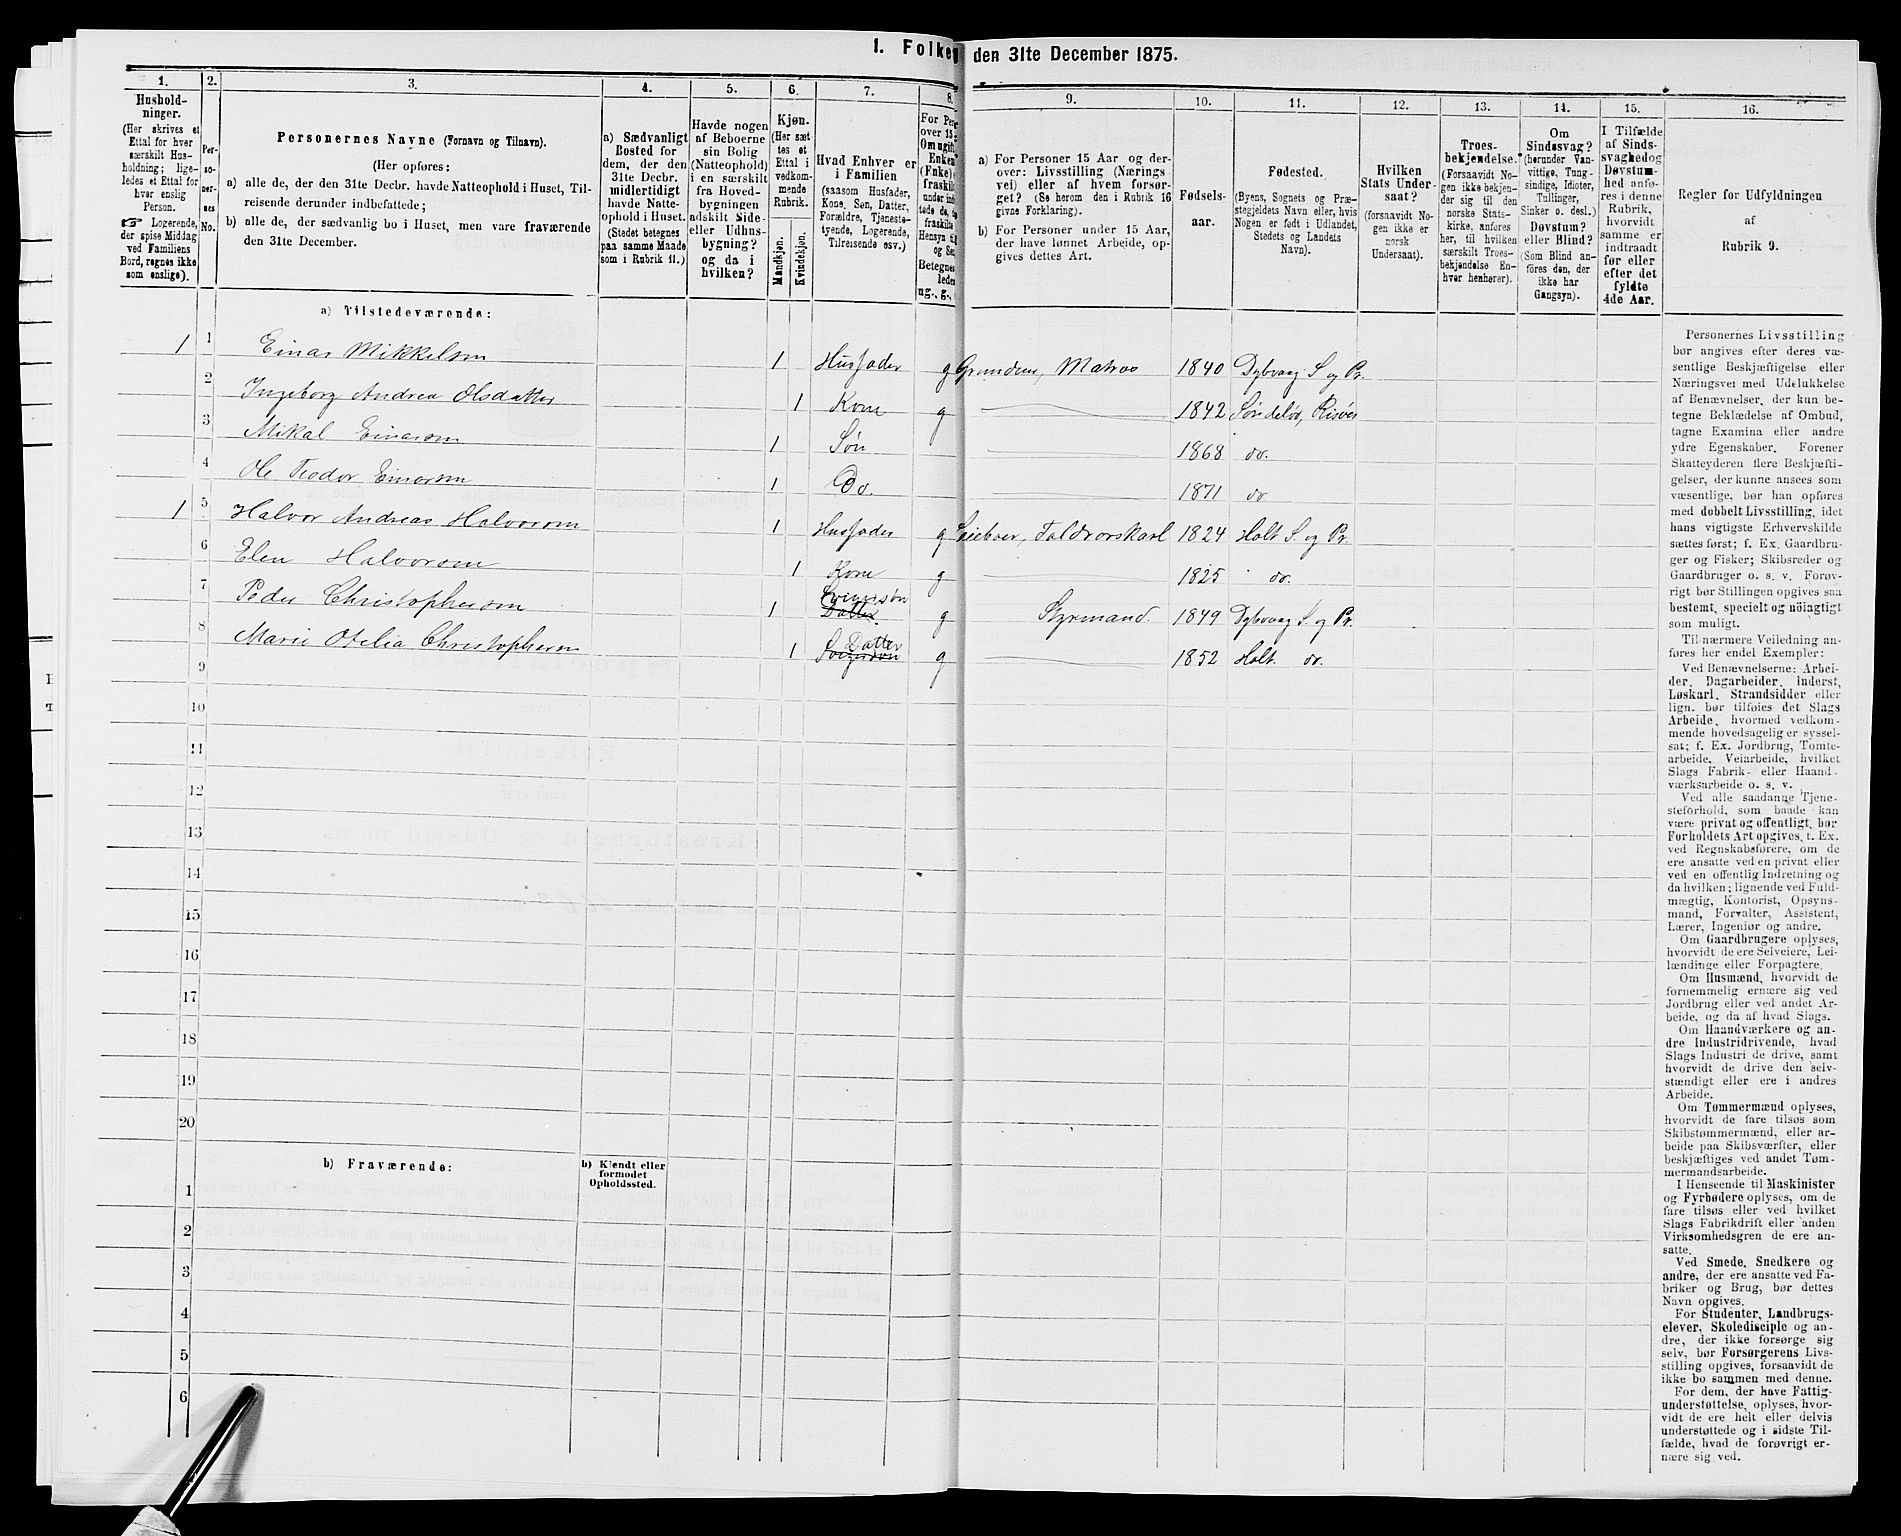 1. Folke den 31te December 1875.
1.
Hushold-
ninger.
(Her skrives et
Ettal for hver
særskilt Hus-
holdning; lige-
ledes et Ettal for
hver enslig
Person.
☞ Logerende,
der spise Middag
ved Familiens
Bord, regnes ikke
som enslige).
2.
Per-
so-
ner-
nes
No.
3.
Personernes Navne (Fornavn og Tilnavn).
(Her opføres:
a) alle de, der den 31te Decbr. havde Natteophold i Huset, Til-
reisende derunder indbefattede;
b) alle de, der sædvanlig bo i Huset, men vare fraværende
den 31te December.
4.
a) Sædvanligt
Bosted for
dem, der den
31te Decbr.
midlertidigt
havde Natte-
ophold i Huset.
(Stedet betegnes
paa samme Maade
som i Rubrik 11.)
5.
Havde nogen
af Beboerne
sin Bolig
(Natteophold)
i en særskilt
fra Hoved-
bygningen
adskilt Side-
eller Udhus-
bygning?
og da i
hvilken?
6.
Kjøn.
(Her sæt-
tes et
Ettal i
vedkom-
mende
Rubrik.
Mandkjøn.
Kvindekjøn.
7.
Hvad Enhver er
i Familien
(saasom Husfader,
Kone, Søn, Datter,
Forældre, Tjeneste-
tyende, Logerende,
Tilreisende osv.)
8.
For Per
over 15
Om ugift
Enken
(Fnke)
fraskilt
under ind
tede de,
fraskilte
Hensyn til
og Se
Betegnes
lede
ug., g.,
9.
a) For Personer 15 Aar og der-
over: Livsstilling (Nærings-
vei) eller af hvem forsør-
get? (Se herom den i Rubrik 16
givne Forklaring).
b) For Personer under 15 Aar,
der have lønnet Arbeide, op-
gives dettes Art.
10.
Fødsels-
aar.
11.
Fødested.
(Byens, Sognets og Præ-
stegjeldets Navn eller, hvis
Nogen er født i Udlandet,
Stedets og Landets
Navn).
12.
Hvilken
Stats Under-
saat?
(forsaavidt No-
gen ikke er
norsk
Undersaat).
13.
Troes-
bekjendelse.
(Forsaavidt No-
gen ikke bekjen-
der sig til den
norske Stats-
kirke, anføres
her, til hvilken
særskilt Troes-
bekjendelse En-
hver henhører).
14.
Om
Sindssvag?
(herunder Van-
vittige, Tung-
sindige, Idioter,
Tullinger,
Sinker o. desl.)
Døvstum?
eller Blind?
(Som Blind an-
føres den, der
ikke har
Gangsyn).
15.
I Tilfælde
af Sinds-
svaghed og
Døvstum-
hed anfø-
res i denne
Rubrik,
hvorvidt
samme er
indtraadt
før eller
efter det
fyldte
4de Aar.
16.
Regler for Udfyldningen
af
Rubrik 9.
a) Tilstedeværende:
1 1 Einar Mikkelsen 1 Husfader g Grundeier, Matros 1840 Dybvaag S. og Pr.
2 Ingeborg Andrea Olsdatter 1 Kone g 1842 Søndeløv, Risør
3 Mikal Einarsen 1 Søn 1868 do.
4 Ole Teodor Einarsen 1 Do. 1871 do
1 5 Halvor Andreas Halvorsen 1 Husfader g Leieboer, Toldrorskarl 1824 Holt S. og Pr.
6 Elen Halvorsen 1 Kone g 1825 do.
7 Peder Christophersen 1 Svigersøn Datter g Styrmand. 1849 Dybvaag S. og Pr.
8 Marie Otelia Christophersen 1 Datter Svigersøn g 1852 Holt. do.
9
10
11
12
13
14
15
16
17
18
19
20
b) Fraværende:
b) Kjendt eller
formodet
Opholdssted.
1
2
3
4
5
6
Personernes Livsstilling
bør angives efter deres væ-
sentlige Beskjæftigelse eller
Næringsvei med Udelukkelse
af Benævnelser, der kun be-
tegne Beklædelse af Ombud,
tagne Examina eller andre
ydre Egenskaber. Forener
Skatteyderen flere Beskjæfti-
gelser, der kunne ansees som
væsentlige, bør han opføres
med dobbelt Livsstilling, idet
hans vigtigste Erhvervskilde
sættes først; f. Ex. Gaardbru-
ger og Fisker; Skibsreder og
Gaardbruger o. s. v. Forøv-
rigt bør Stillingen opgives saa
bestemt, specielt og nöiagtigt
som muligt.
Til nærmere Veiledning an-
føres her endel Exempler:
Ved Benævnelserne: Arbei-
der, Dagarbeider, Inderst,
Løskarl, Strandsidder eller
lign. bør tilføies det Slags
Arbeide, hvormed vedkom-
mende hovedsagelig er syssel-
sat; f. Ex. Jordbrug, Tomte-
arbeide, Veiarbeide, hvilket
Slags Fabrik- eller Haand-
værksarbeide o. s. v.
Ved alle saadanne Tjene-
steforhold, som baade kan
være privat og offentligt, bør
Forholdets Art opgives, t. Ex.
ved Regnskabsførere, om de
ere ansatte ved en privat eller
ved en offentlig Indretning og
da hvilken; lignende ved Fuld-
mægtig, Kontorist, Opsyns-
mand, Forvalter, Assistent,
Lærer, Ingeniør og andre.
Om Gaardbrugere oplyses,
hvorvidt de ere Selveiere, Lei-
lændinge eller Forpagtere.
Om Husmænd, hvorvidt de
fornemmelig ernære sig ved
Jordbrug eller ved andet Ar-
beide, og da af hvad Slags.
Om Haandværkere og an-
dre Industridrivende, hvad
Slags Industri de drive, samt
hvorvidt de drive den selv-
stændigt eller ere i andres
Arbeide.
Om Tømmermænd oplyses,
hvorvidt de fare tilsøs som
Skibstømmermænd, eller ar-
beide paa Skibsværfter, eller
beskjæftiges ved andet Tøm-
mermandsarbeide.
I Henseende til Maskinister
og Fyrbødere oplyses, om de
fare tilsøs eller ved hvilket
Slags Fabrikdrift eller anden
Virksomhedsgren de ere an-
satte.
Ved Smede, Snedkere og
andre, der ere ansatte ved Fa-
briker og Brug, bør dettes
Navn opgives.
For Studenter, Landbrugs-
elever, Skoledisciple og an-
dre, der ikke forsørge sig
selv, bør Forsørgerens Livs-
stilling opgives, forsaavidt de
ikke bo sammen med denne.
For dem, der have Fattig-
understøttelse, oplyses, hvor-
vidt de ere helt eller delvis
understøttede og i sidste Til-
fælde, hvad de forøvrigt er-
nære sig ved.